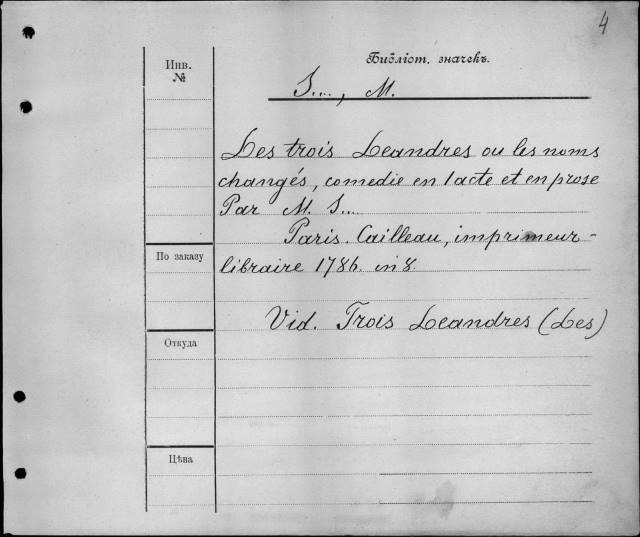 4
Инв.
№
Библіот. значекъ.
S..., M.
Les trois Leandres ou les noms
changés, comedie en 1 acte et en prose
Par M. S....
Paris. Cailleau, imprimeur-
По заказу
libraire 1786. in 8.
Vid. Trois Leandres (Les)
Откуда
Цѣна